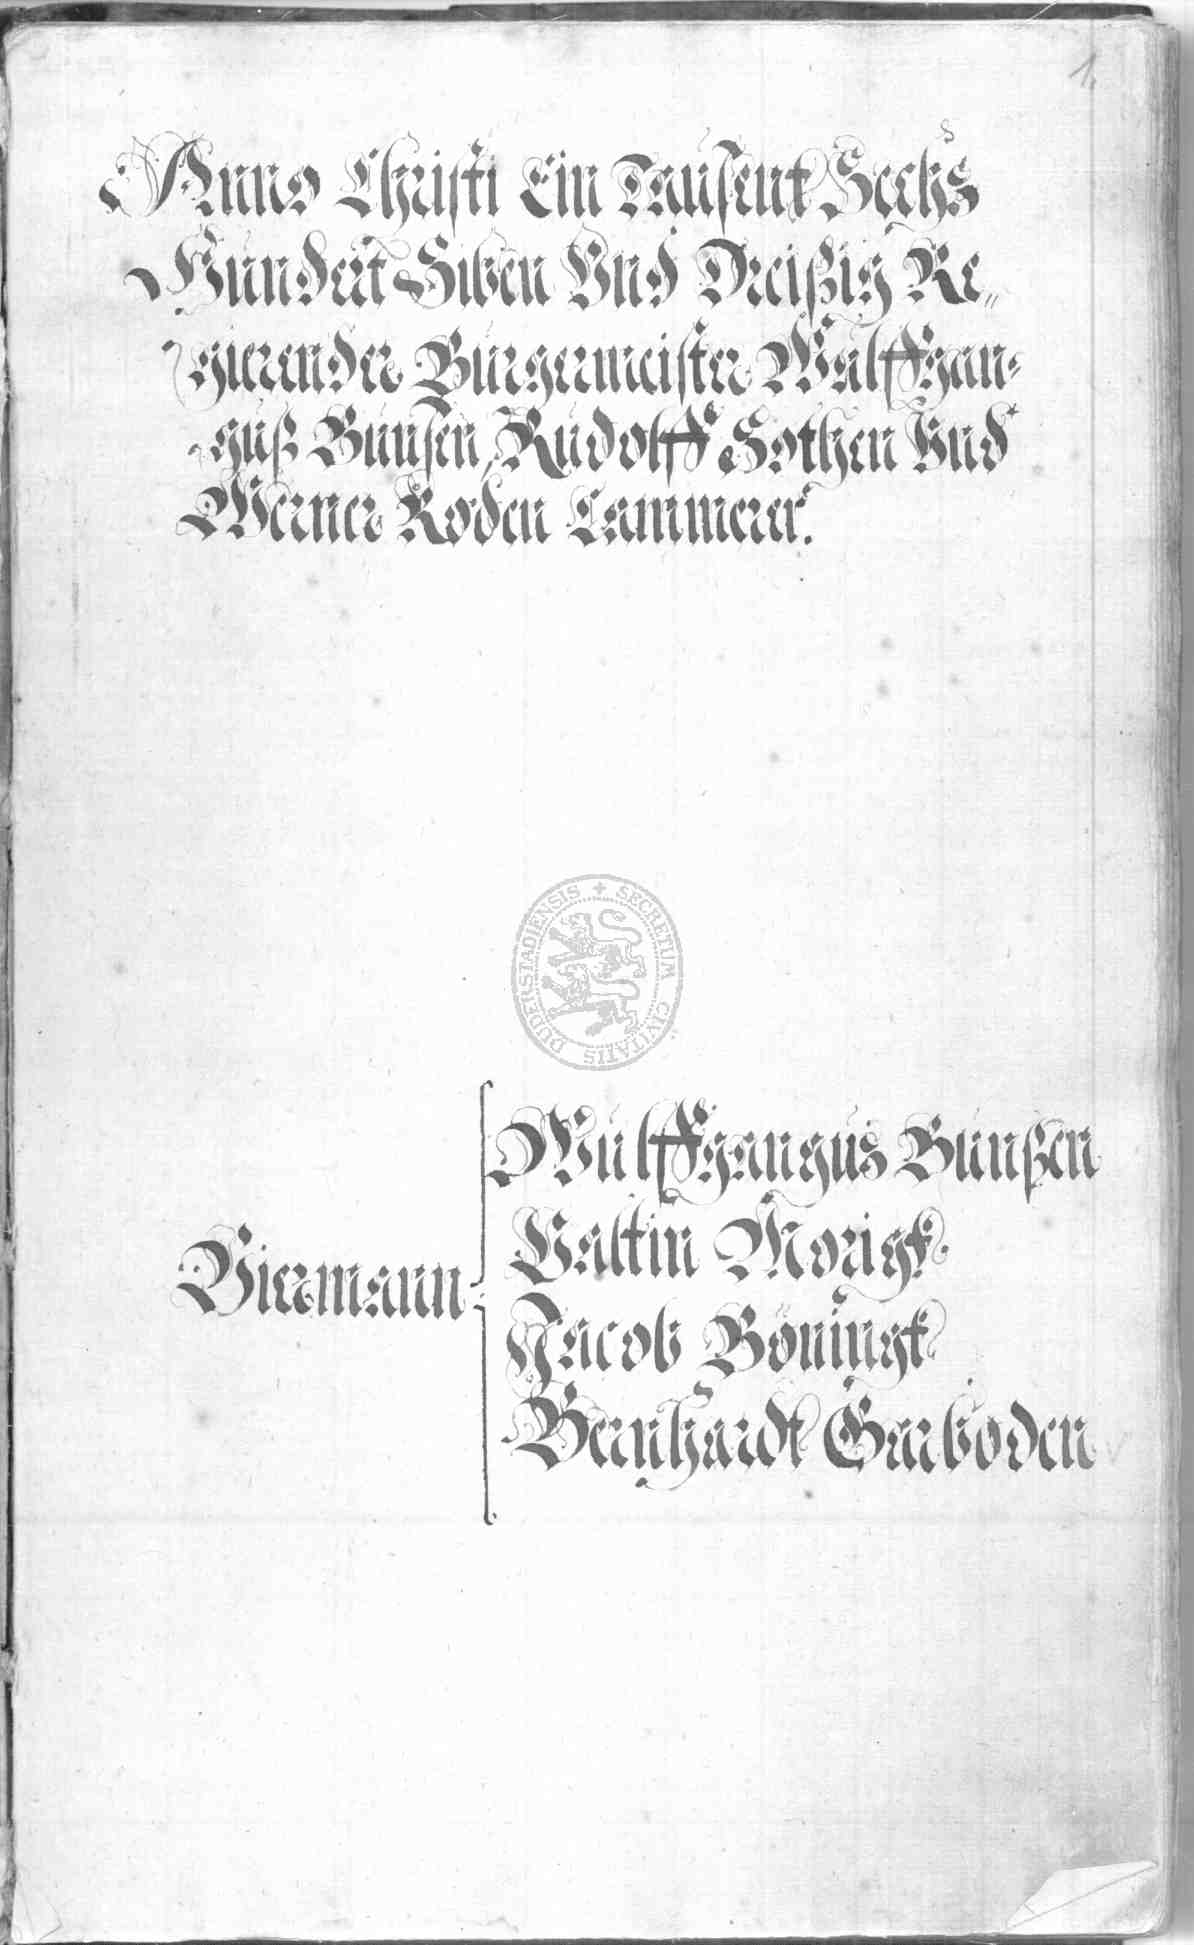 1.
Anno Christi Ein Tausent Sechs
Hundert Siben Vnd Dreißig Re„
gierender Burgermeister Wulffgan-
guß Bunsen, Rudolff Sothen Vnd
Werner Roden Cammerer.
SECRETUM CIVITATIS DUDERSTADIENSIS
Wulffgangus Bunßen
Valtin Morigk
Biermann
Jacob Böningk
Bernhardt Gerboden